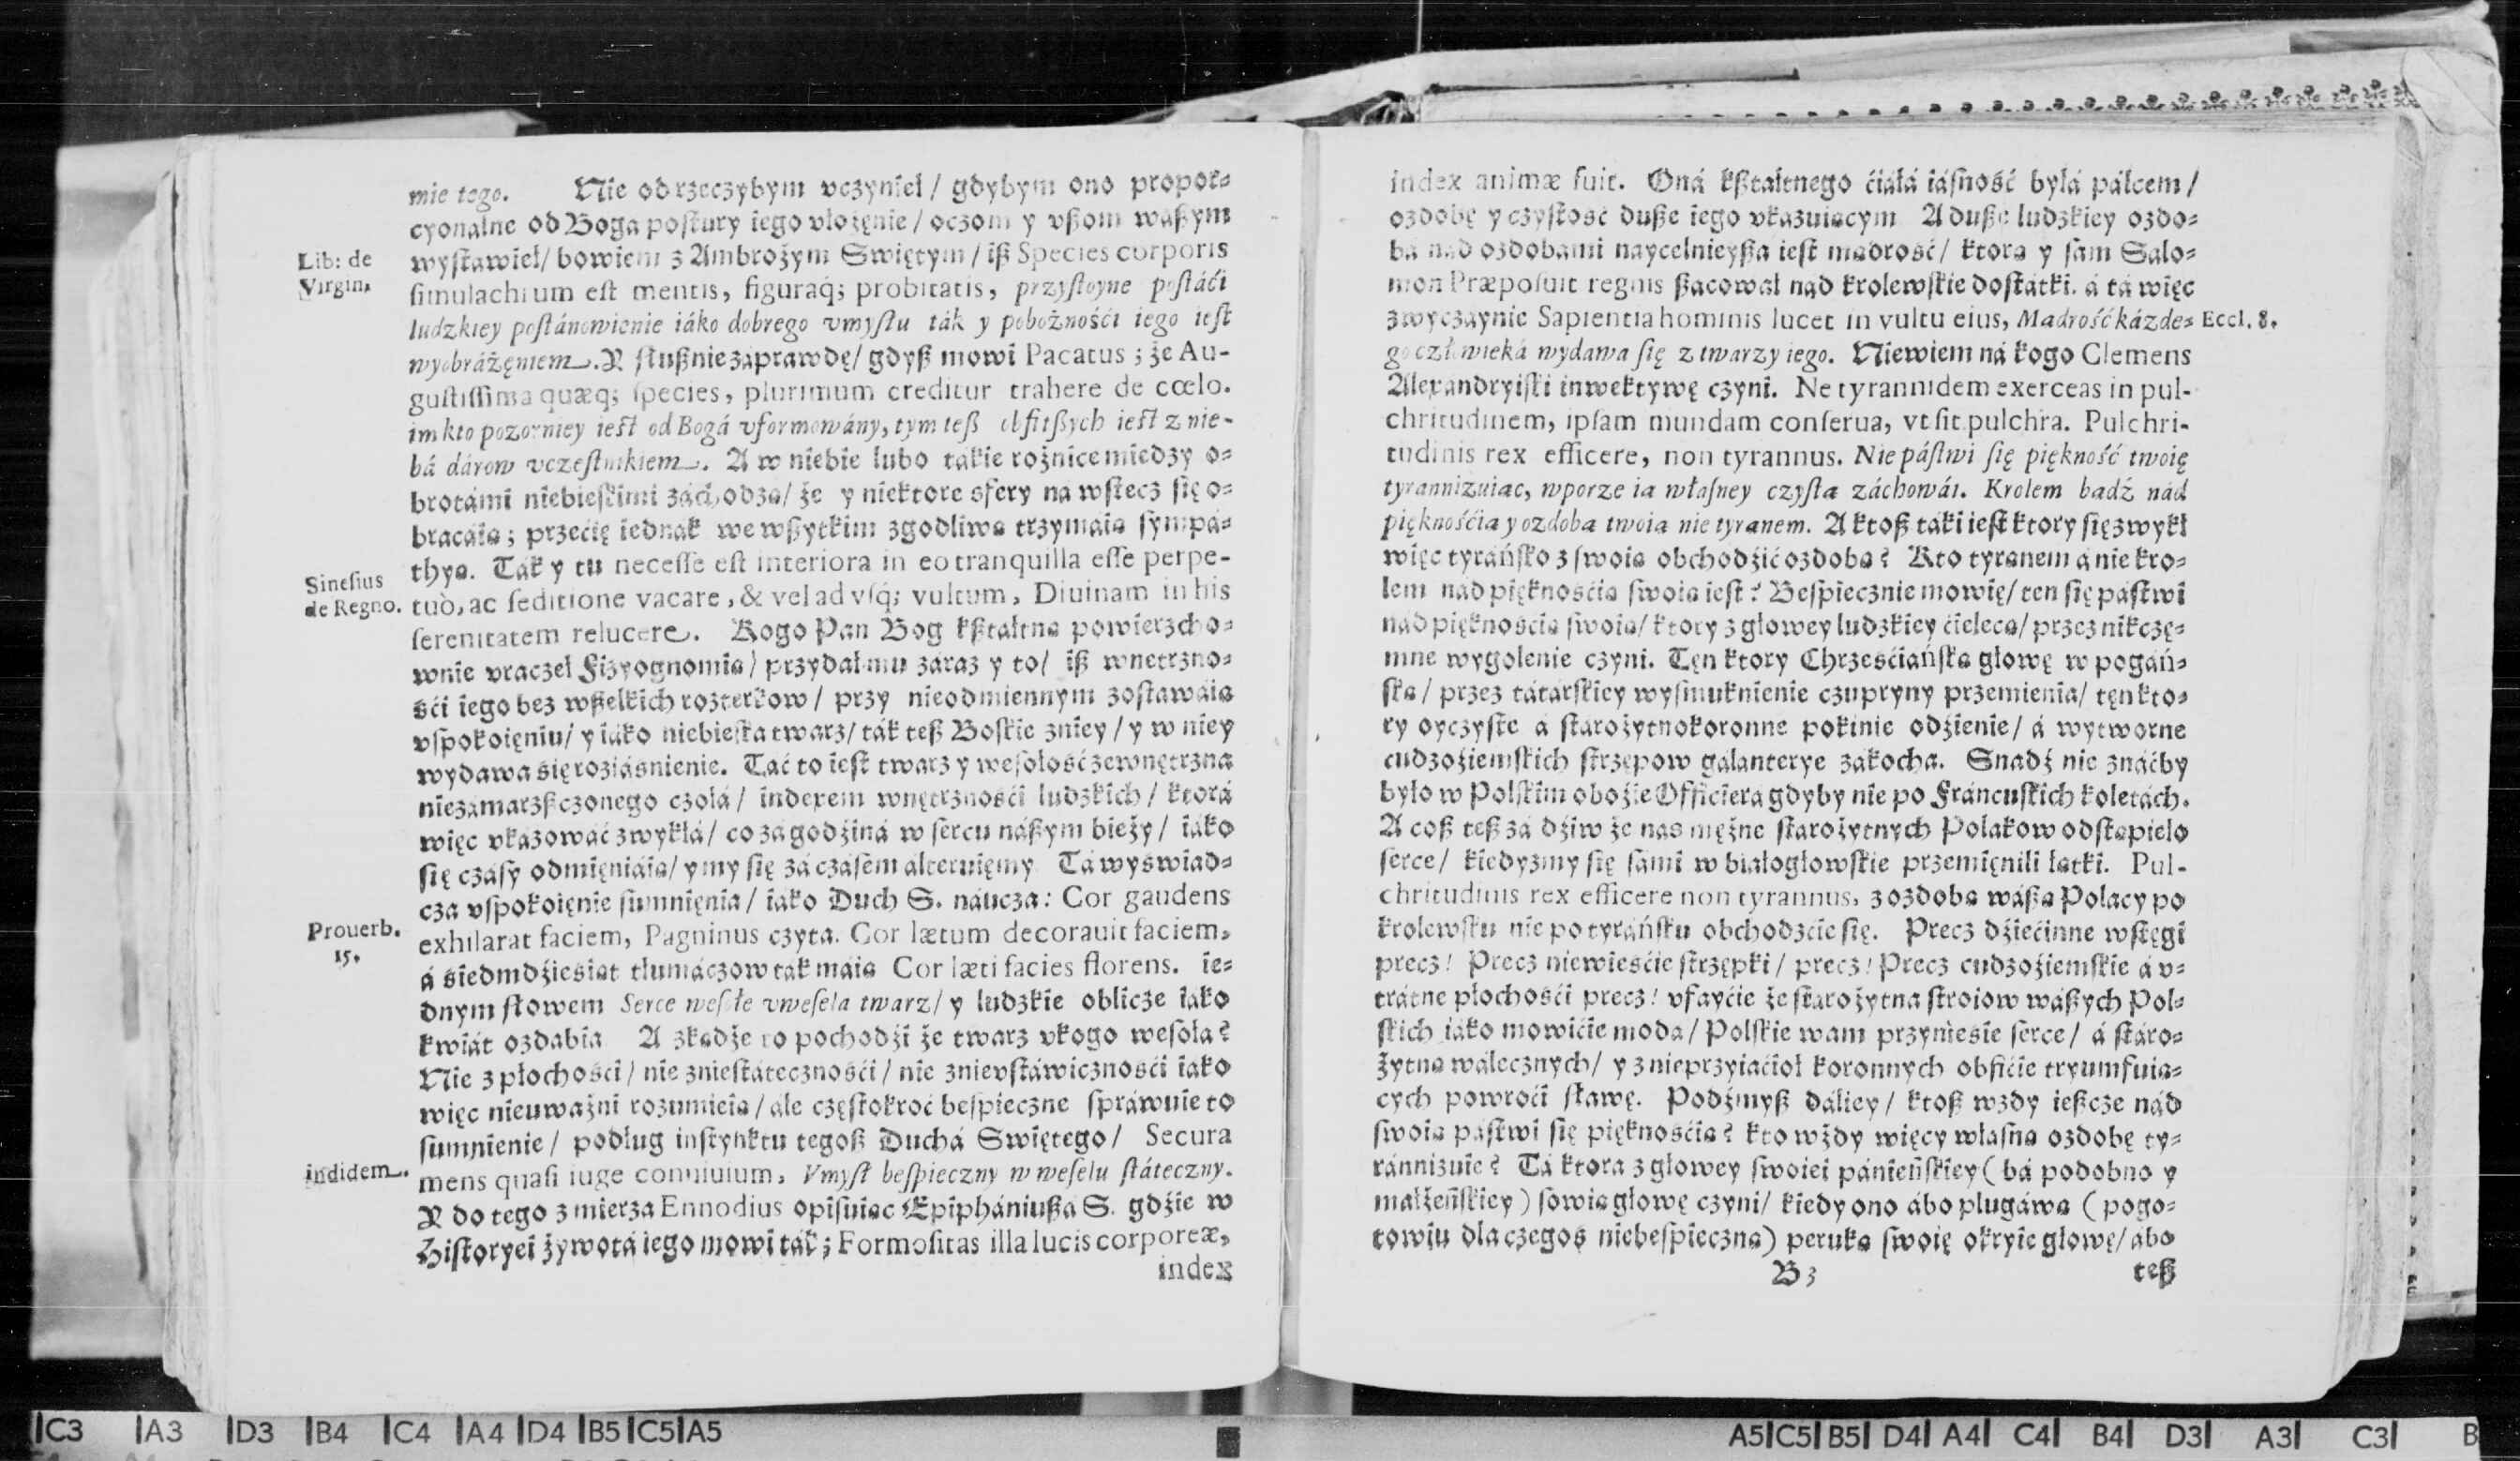 mie tego. Nie odrzeczybym vczynieł / gdybym ono propor-
cyonalne od Boga postury iego vłożęnie / oczom y vßom wáßym
wystawieł / bowiem z Ambrożym Swiętym / iß Species corporis
Lib: de
Virgin.
simulachrum est mentis, figuraq́; probitatis, przystoyne postáći
ludzkiey postánowienie iáko dobrego vmysłu ták y pobożnośći iego iest
wyobráżęniem. Y słußnie záprawdę / gdyß mowi Pacatus ; że Au-
gustissima quæq; species, plurimum creditur trahere de cœlo.
im kto pozorniey iest od Bogá vformowány, tym teß obfitßych iest z nie-
bá dárow vczestnikiem. A w niebie lubo tákie rożnice miedzy o-
brotámi niebieskimi záchodzą / że y niektore sfery ná wstecz się o-
brácáią ; przećię iednák we wßytkim zgodliwą trzymáią sympá-
thyą. Ták y tu necesse est interiora in eo tranquilla esse perpe-
Sinesius
de Regno.
tuò, ac seditione vacare, & vel ad vsq́; vultum, Diuinam in his
serenitatem relucere. Kogo Pan Bog kßtałtną powierzcho-
wnie vraczeł Fizyognomią / przydał mu záraz y to / iß wnetrzno-
śći iego bez wßelkich rozterkow / przy nieodmiennym zostawáią
vspokoięniu / y iáko niebieska twarz / ták teß Boskie z niey / y w niey
wydawa się roziáśnienie. Tać to iest twarz y wesołość zewnętrzna
niezámarzßczonego czołá / indexem wnętrznośći ludzkich / ktorá
więc vkázowáć zwykłá / co zá godźiná w sercu náßym bieży / iáko
się czásy odmięniáią / y my się zá czásem alteruięmy Tá wyświad-
cza vspokoięnie sumnięnia / iáko Duch S. náucza : Cor gaudens
Prouerb.
15.
exhilarat faciem, Pagninus czyta. Cor lætum decorauit faciem,
á śiedmdźieśiąt tłumáczow ták máią Cor læti facies florens. ie-
dnym słowem Serce wesołe vwesela twarz / y ludzkie oblicze iáko
kwiát ozdabia A zkądże to pochodźi że twarz v kogo wesoła?
Nie z płochośći / nie z niestáteczności / nie z nievstáwicznośći iáko
więc nieuważni rozumieią / ále częstokroć bespieczne spráwuie to
sumnienie / podług instynktu tegoß Duchá Swiętego / Secura
indidem.
mens quasi iuge conuiuium, Vmysł bespieczny w weselu státeczny.
Y do tego zmierza Ennodius opisuiąc Epiphániußa S. gdźie w
Historyei żywotá iego mowi ták ; Formositas illa lucis corporeæ,
index
index animæ fuit. Oná kßtałtnego ćiáłá iásność byłá pálcem /
ozdobę y czystość duße iego vkazuiącym A duße ludzkiey ozdo-
bá nád ozdobami naycelnieyßa iest mądrość / ktorą y sam Sálo-
mon Præposuit regnis ßácował nád krolewskie dostátki. á tá więc
zwyczáynie Sapientia hominis lucet in vultu eius, Mądrość káżde-
Eccl. 8.
go człowieká wydawa się z twarzy iego. Niewiem ná kogo Clemens
Alexándryiski inwektywę czyni. Ne tyrannidem exerceas in pul-
chritudinem, ipsam mundam conserua, vt sit pulchra. Pulchri-
tudinis rex efficere, non tyrannus. Nie pástwi się piękność twoię
tyrannizuiąc, wporze ią własney czystą záchowáı. Krolem bądź nád
pięknośćią y ozdobą twoią nie tyranem. A ktoß táki iest ktory się zwykł
więc tyráńsko z swoią obchodźić ozdobą? Kto tyranem á nie kro-
lem nád pięknośćią swoią iest? Bespiecznie mowię / ten się pástwi
nád pięknośćią swoią / ktory z głowey ludzkiey ćielęcą / przez nikczę-
mne wygolenie czyni. Tęn ktory Chrześćiáńską głowę w pogáń-
ską / przez tátárskiey wysmuknienie czupryny przemienia / tęn kto-
ry oyczyste á stárożytnokoronne pokinie odźienie / á wytworne
cudzoźiemskich strzępow gálánterye zákocha. Snadź nie znáćby
było w Polskim oboźie Officierá gdyby nie po Fráncuskich koletách.
A coß teß zá dźiw że nas mężne stárożytnych Polakow odstąpieło
serce / kiedyzmy się sámi w białogłowskie przemięnili łatki. Pul-
chritudinis rex efficere non tyrannus, z ozdobą wáßą Polacy po
krolewsku nie po tyráńsku obchodzćie się. Precz dźiećinne wstęgi
precz ! Precz niewieśćie strzępki / precz ! Precz cudzoźiemskie á v-
trátne płochośći precz ! vfayćie że stárożytna stroiow wáßych Pol-
skich iáko mowićie moda / Polskie wam przynieśie serce / á stáro-
żytną walecznych / y z nieprzyiaćioł koronnych obfićie tryumfuią-
cych powroći sławę. Podźmyß dáliey / ktoß wzdy ießcze nád
swoią pástwi się pięknośćią? kto wżdy więcy własną ozdobę ty-
ránnizuie? Tá ktora z głowey swoiei pánieńskiey ( bá podobno y
małżeńskiey ) sowią głowę czyni / kiedy ono ábo plugáwą ( pogo-
towiu dla czegoś niebespieczną ) peruką swoię okryie głowę / ábo
B 3
teß